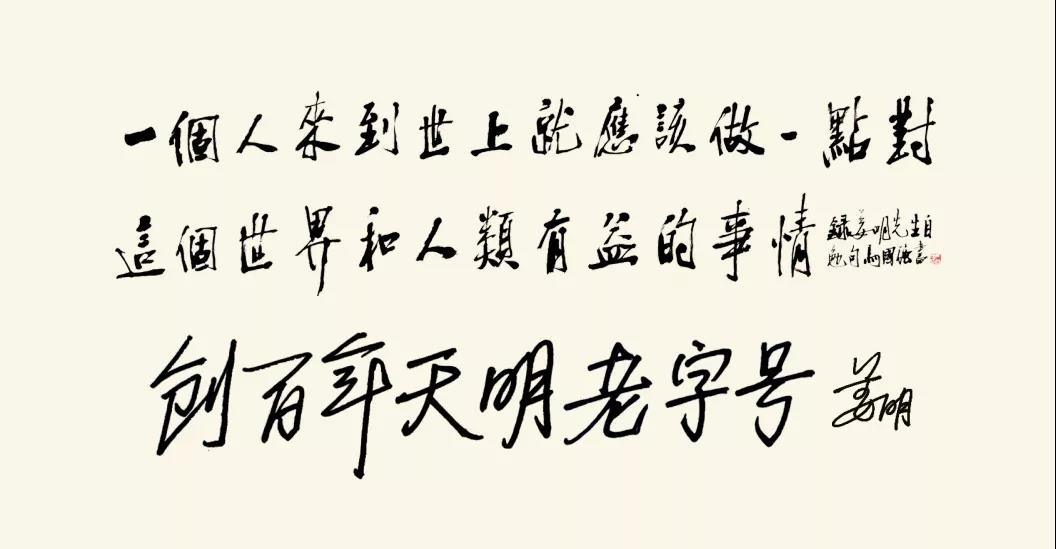 一個人來到世上就應該做一點對
這個世界和人類有益的事情
錄姜明先生自
勉句 國強書
创百年天明老字号
姜明